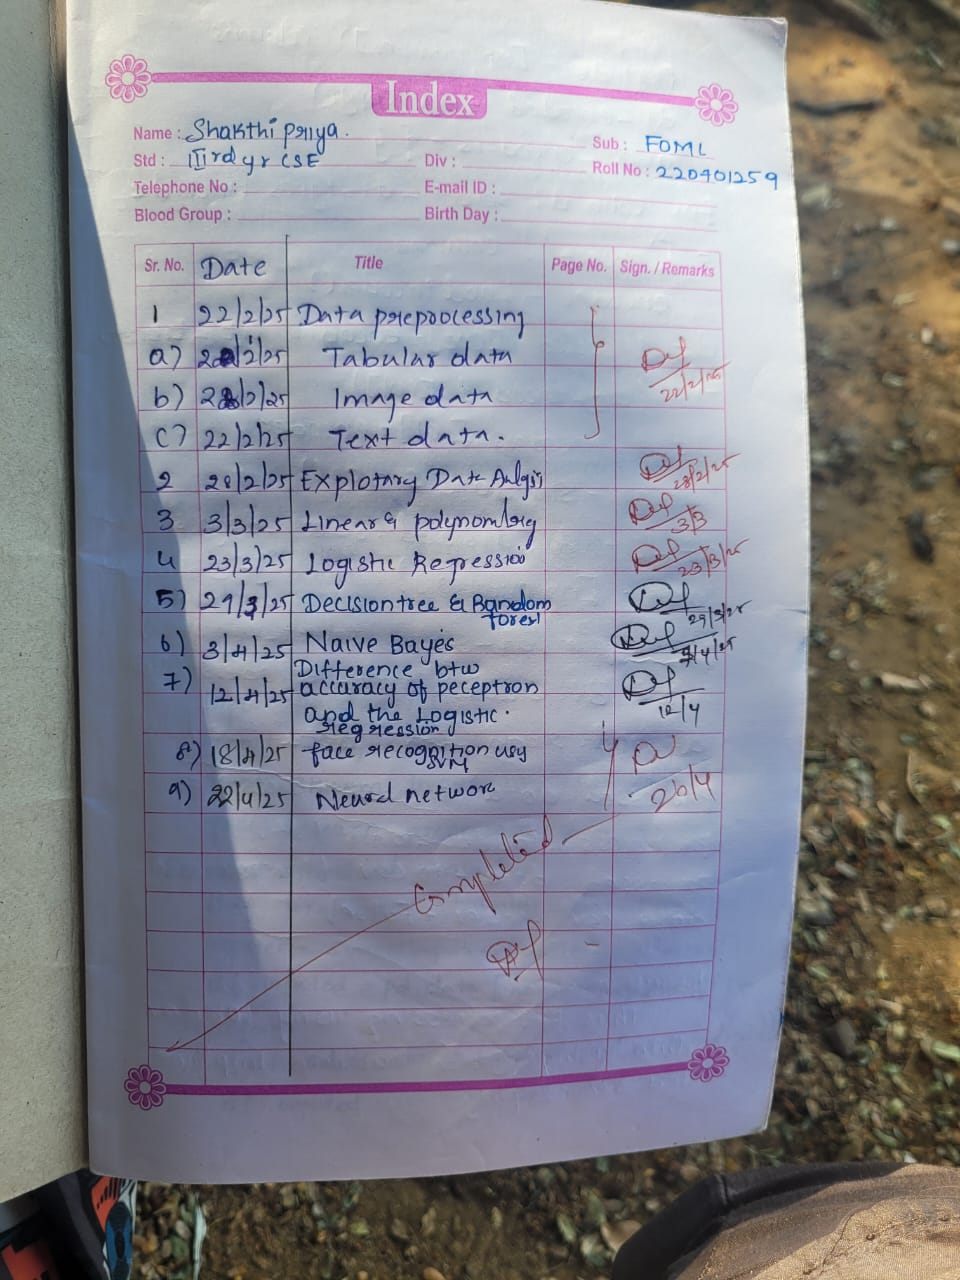 Index
Name : Shakthi priya .
Sub : FOML
Std : IIIrd yr CSE
Div :
Roll No : 220401259
Telephone No :
E-mail ID :
Blood Group :
Birth Day :
Sr. No. Date Title Page No. Sign. / Remarks
1 22/2/25 Data preprocessing
a) 22/2/25 Tabular data
22/2/25
b) 22/2/25 Image data
c) 22/2/25 Text data.
2 28/2/25 Explotary Data Anlysis
28/2/25
3 3/3/25 Linear &
3/3
4 23/3/25 Logistic Regression
23/3/25
5) 29/3/25 Decision tree & Random
forest
29/3/25
6) 3/4/25 Naive Bayes
3/4/25
7) Difference btw
12/4/25 accuracy of peceptron
and the Logistic .
regression
12/4
8) 18/4/25 face recognition usg
SVM
9) 22/4/25 Neural networe
20/4
Completed